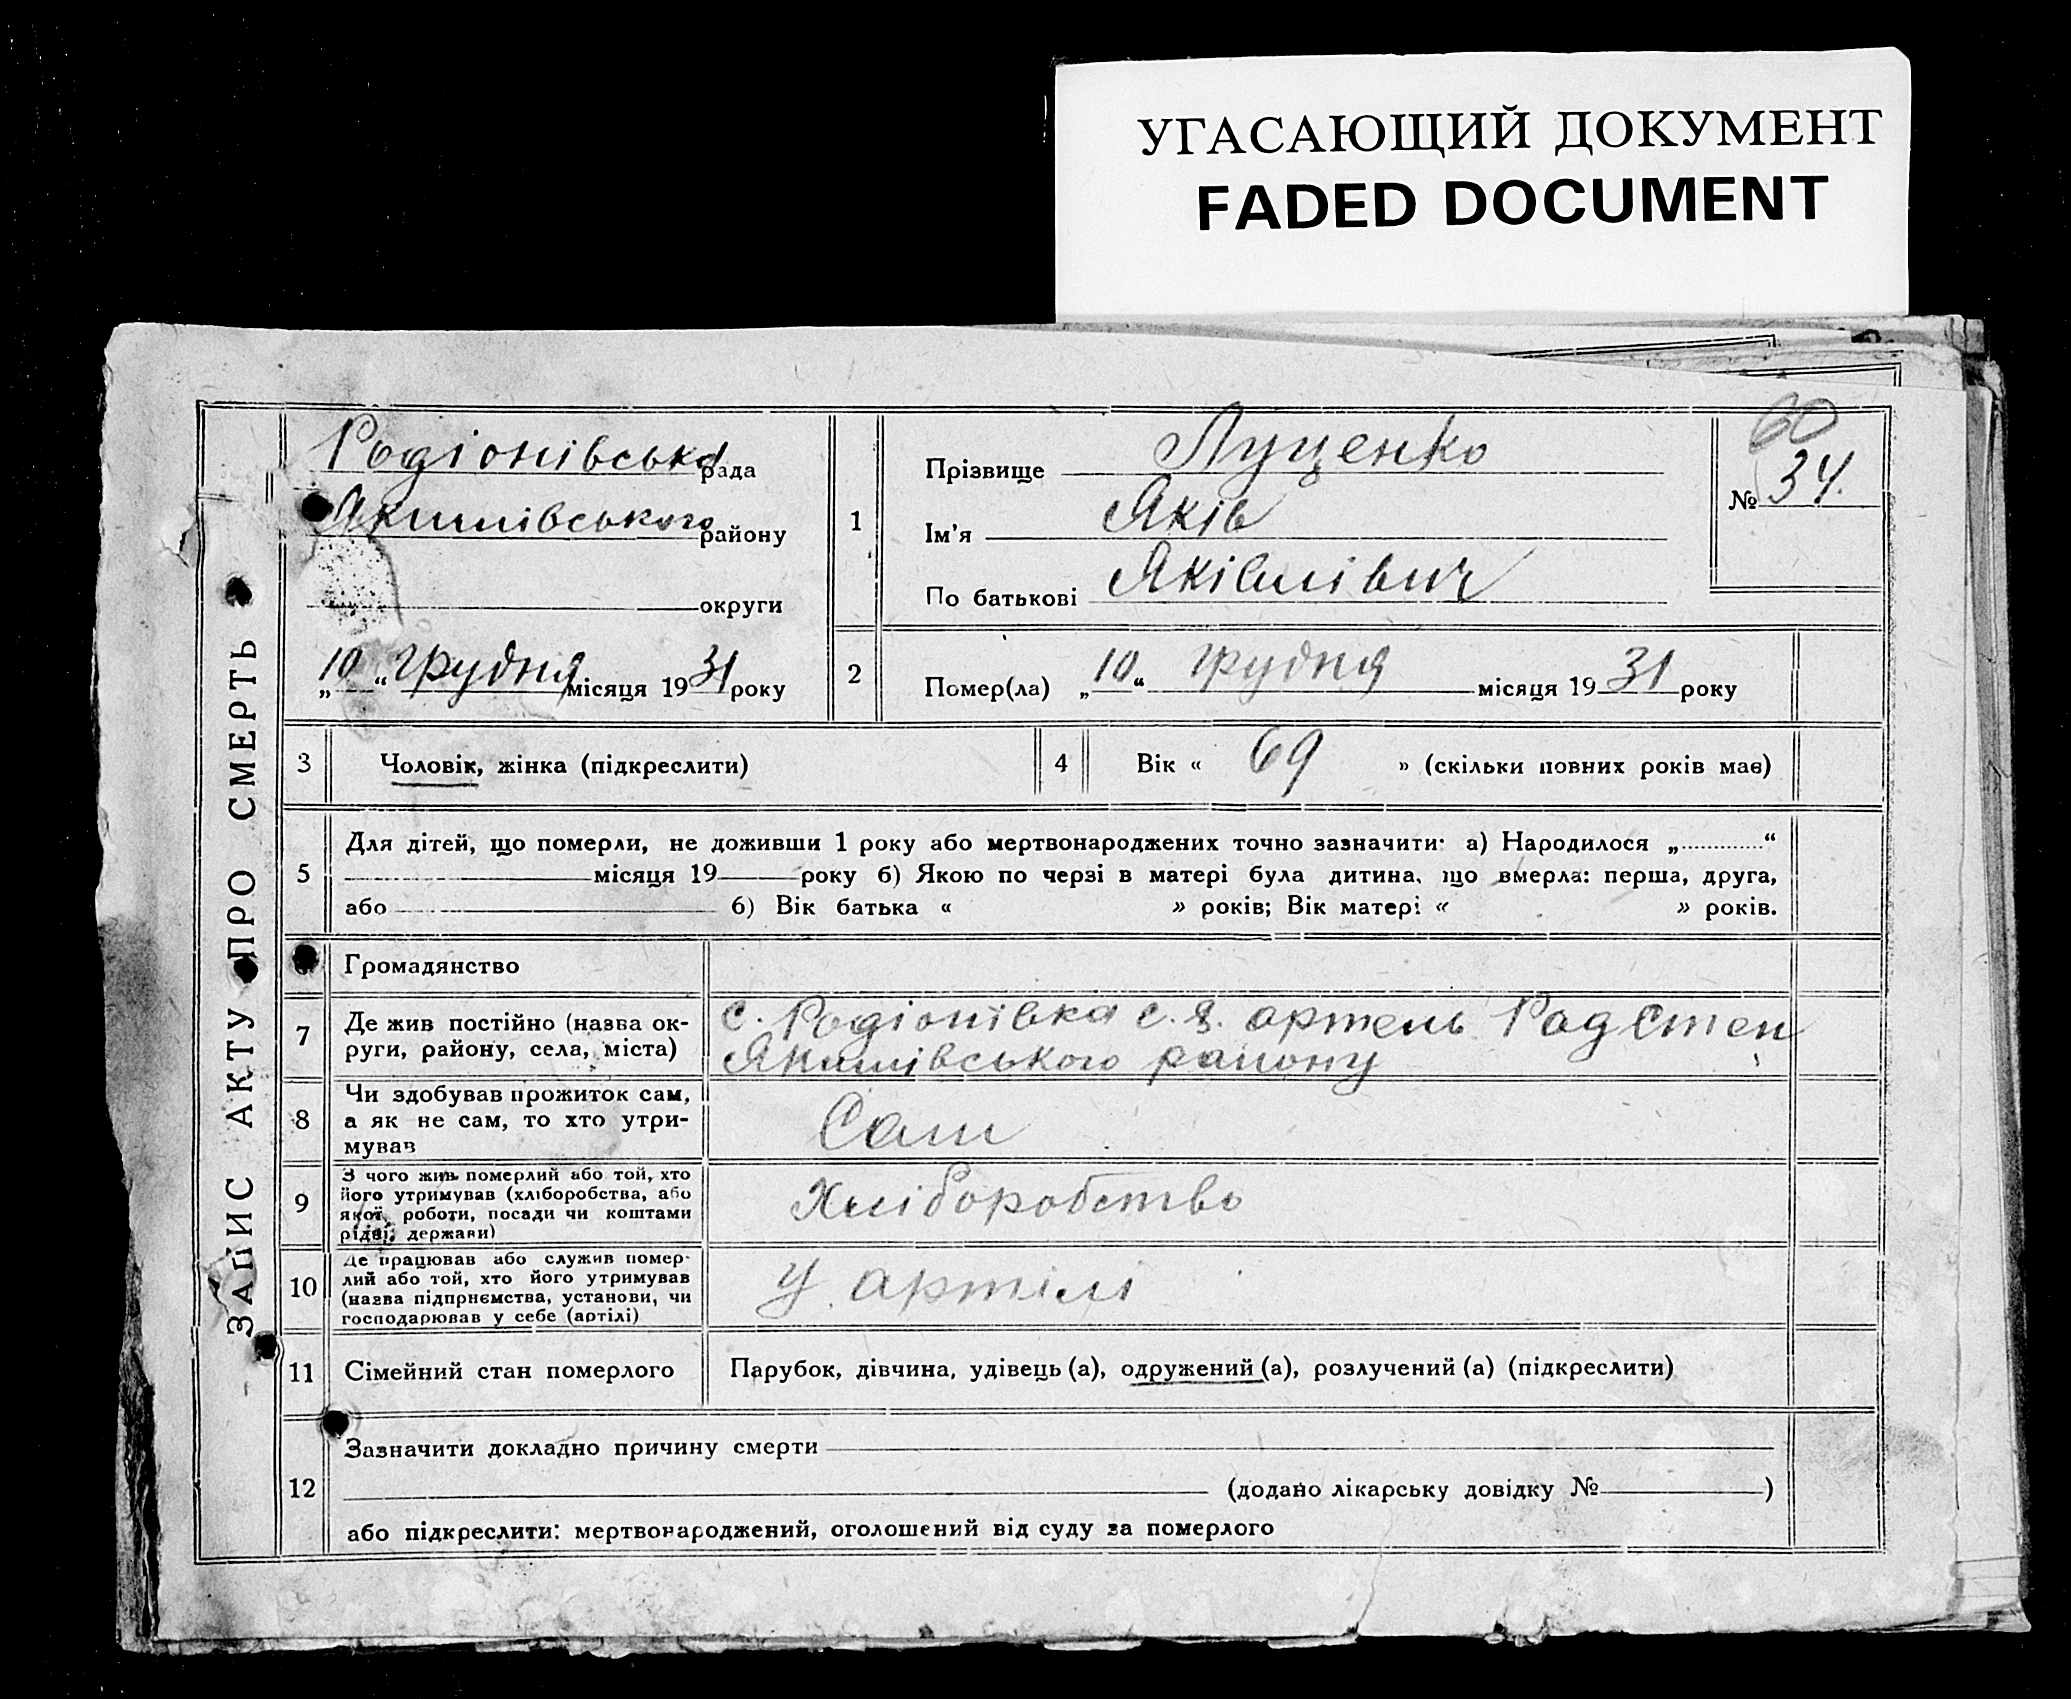 УГАСАЮЩИЙ ДОКУМЕНТ
FADED DOCUMENT
ЗАПИС АКТУ ПРО СМЕРТЬ
Родіонівська рада
Якимівського району
округи
„10“ грудня місяця 1931 року
1
Прізвище Луценко
Ім'я Яків
По батькові Яківлівич
60
№ 34.
2
Помер(ла) „10“ грудня місяця 1931 року
3 Чоловік, жінка (підкреслити)
4 Вік « 69 » (скільки повних років має)
5
Для дітей, що померли, не доживши 1 року або мертвонароджених точно зазначити: а) Народилося „............“
місяця 19 року б) Якою по черзі в матері була дитина, що вмерла: перша, друга,
або б) Вік батька « » років; Вік матері « » років.
Громадянство
7
Де жив постійно (назва ок-
руги, району, села, міста)
с. Родіонівка с. г. артель Рад Степ
Якимівського району
8
Чи здобував прожиток сам,
а як не сам, то хто утри-
мував
Сам
9
З чого жив померлий або той, хто
його утримував (хліборобства, або
якої роботи, посади чи коштами
рідні, держави)
Хліборобство
10
Де працював або служив помер-
лий або той, хто його утримував
(назва підприємства, установи, чи
господарював у себе (артілі)
У артілі
11 Сімейний стан померлого
Парубок, дівчина, удівець (а), одружений (а), розлучений (а) (підкреслити)
12
Зазначити докладно причину смерти
(додано лікарську довідку № )
або підкреслити: мертвонароджений, оголошений від суду за померлого